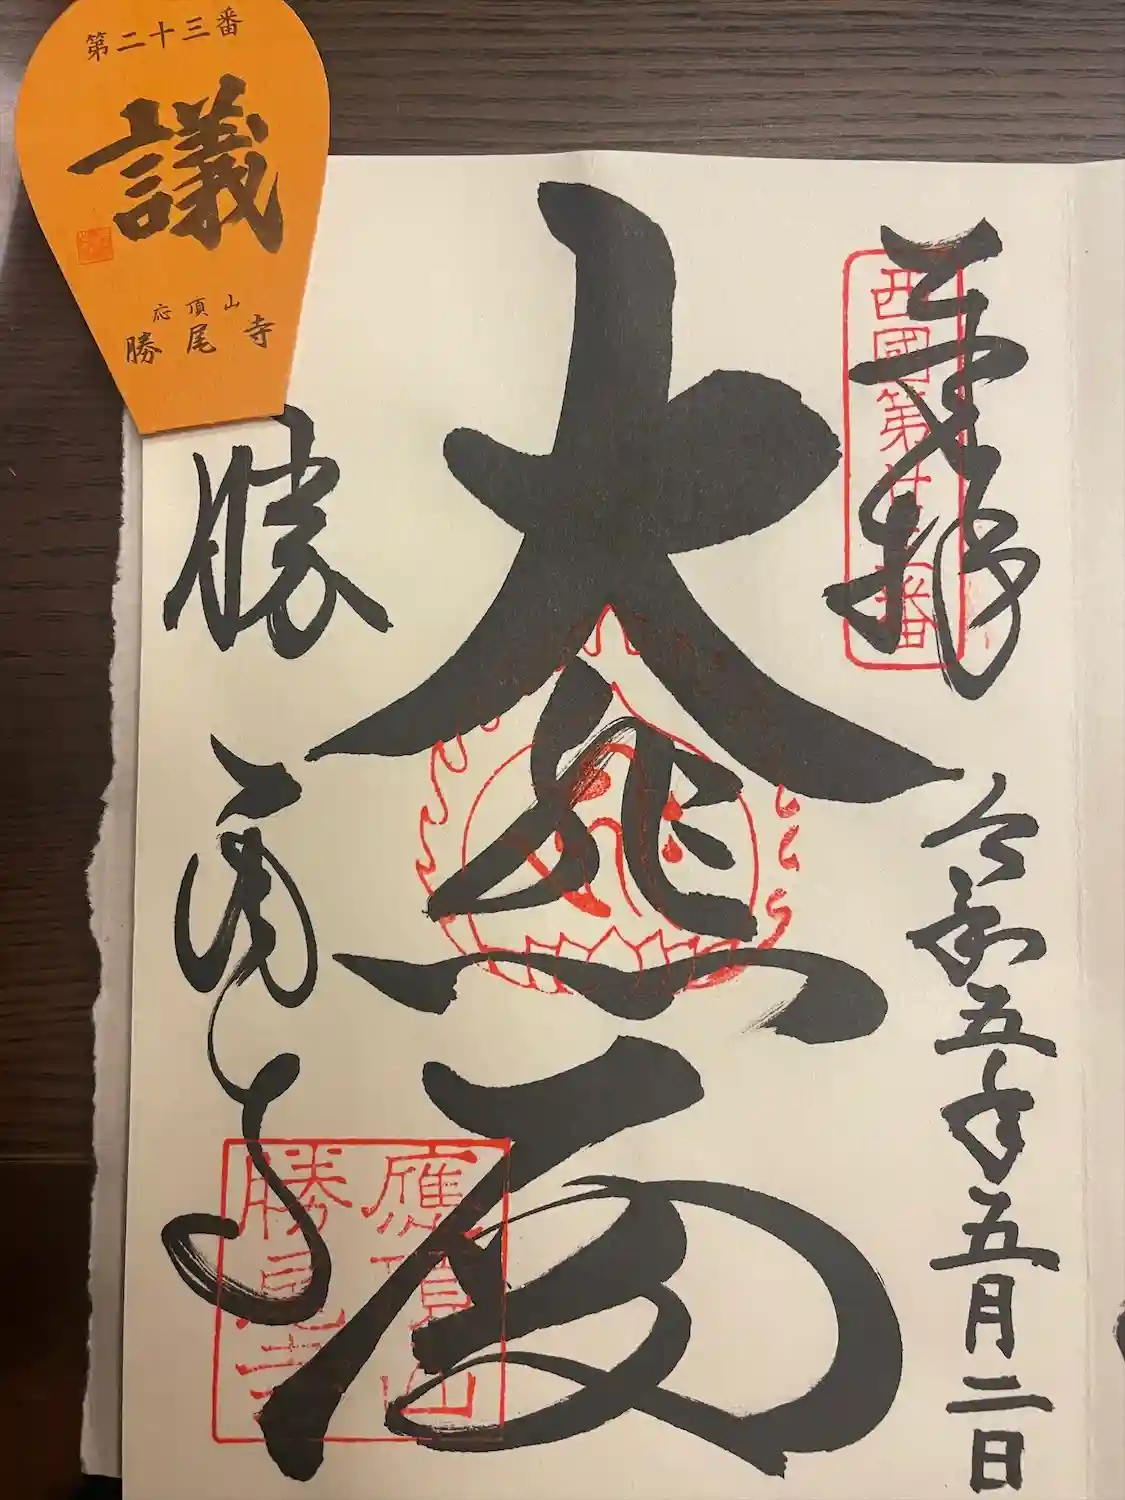 第二十三番
議
応頂山
勝尾寺
奉拝
西國第廿三番
令和五年五月二日
大悲殿
勝尾寺
應頂山
勝尾寺